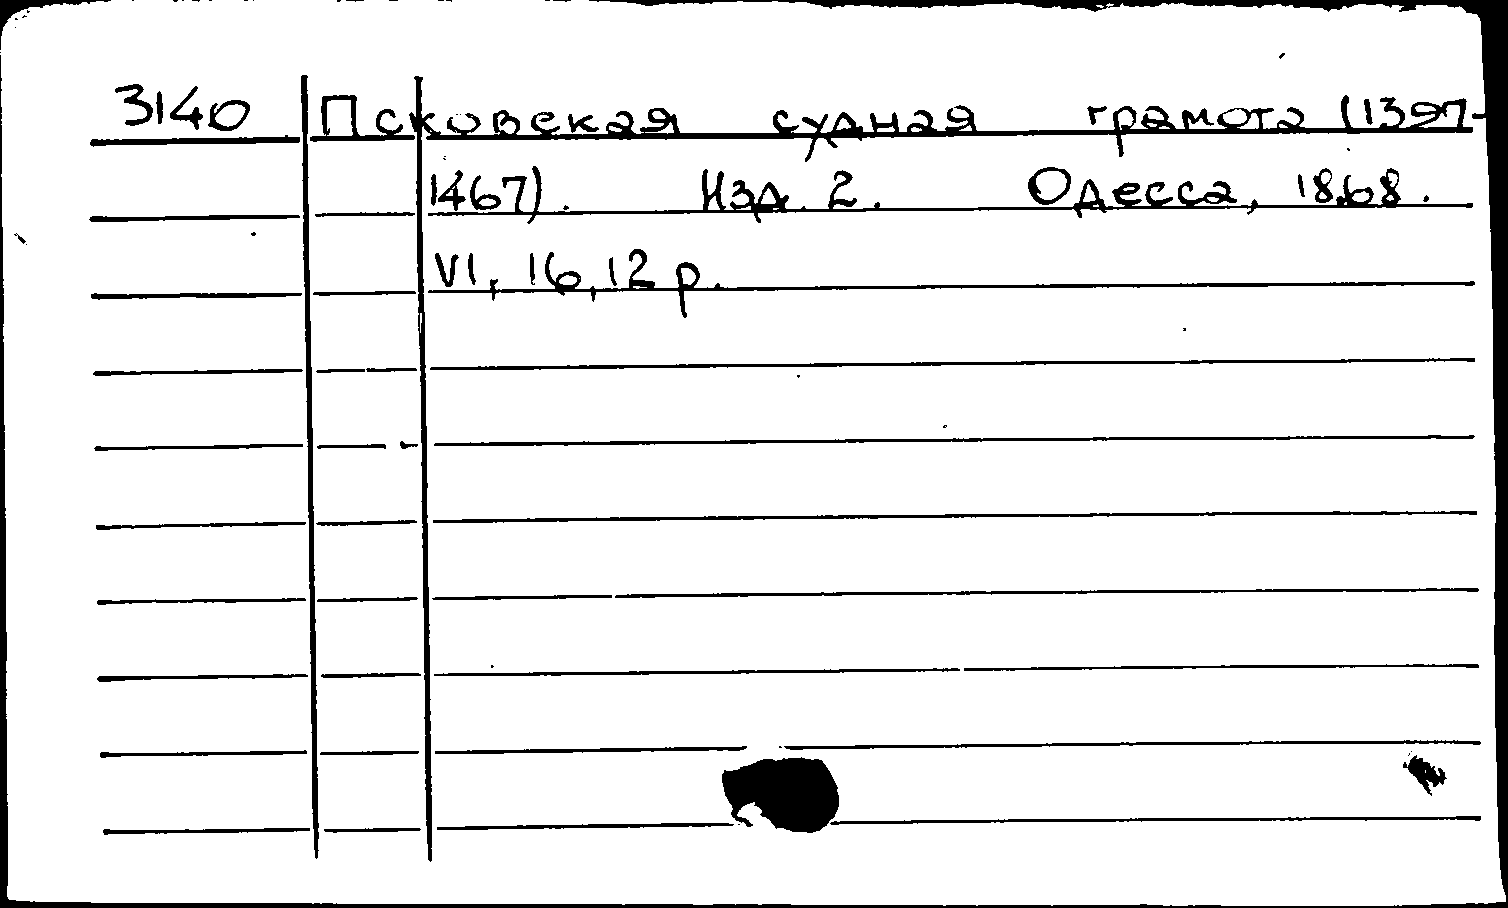 3140 Псковская судная грамота (1397-
1467). Изд. 2. Одесса, 1868.
VI, 16, 12 p.